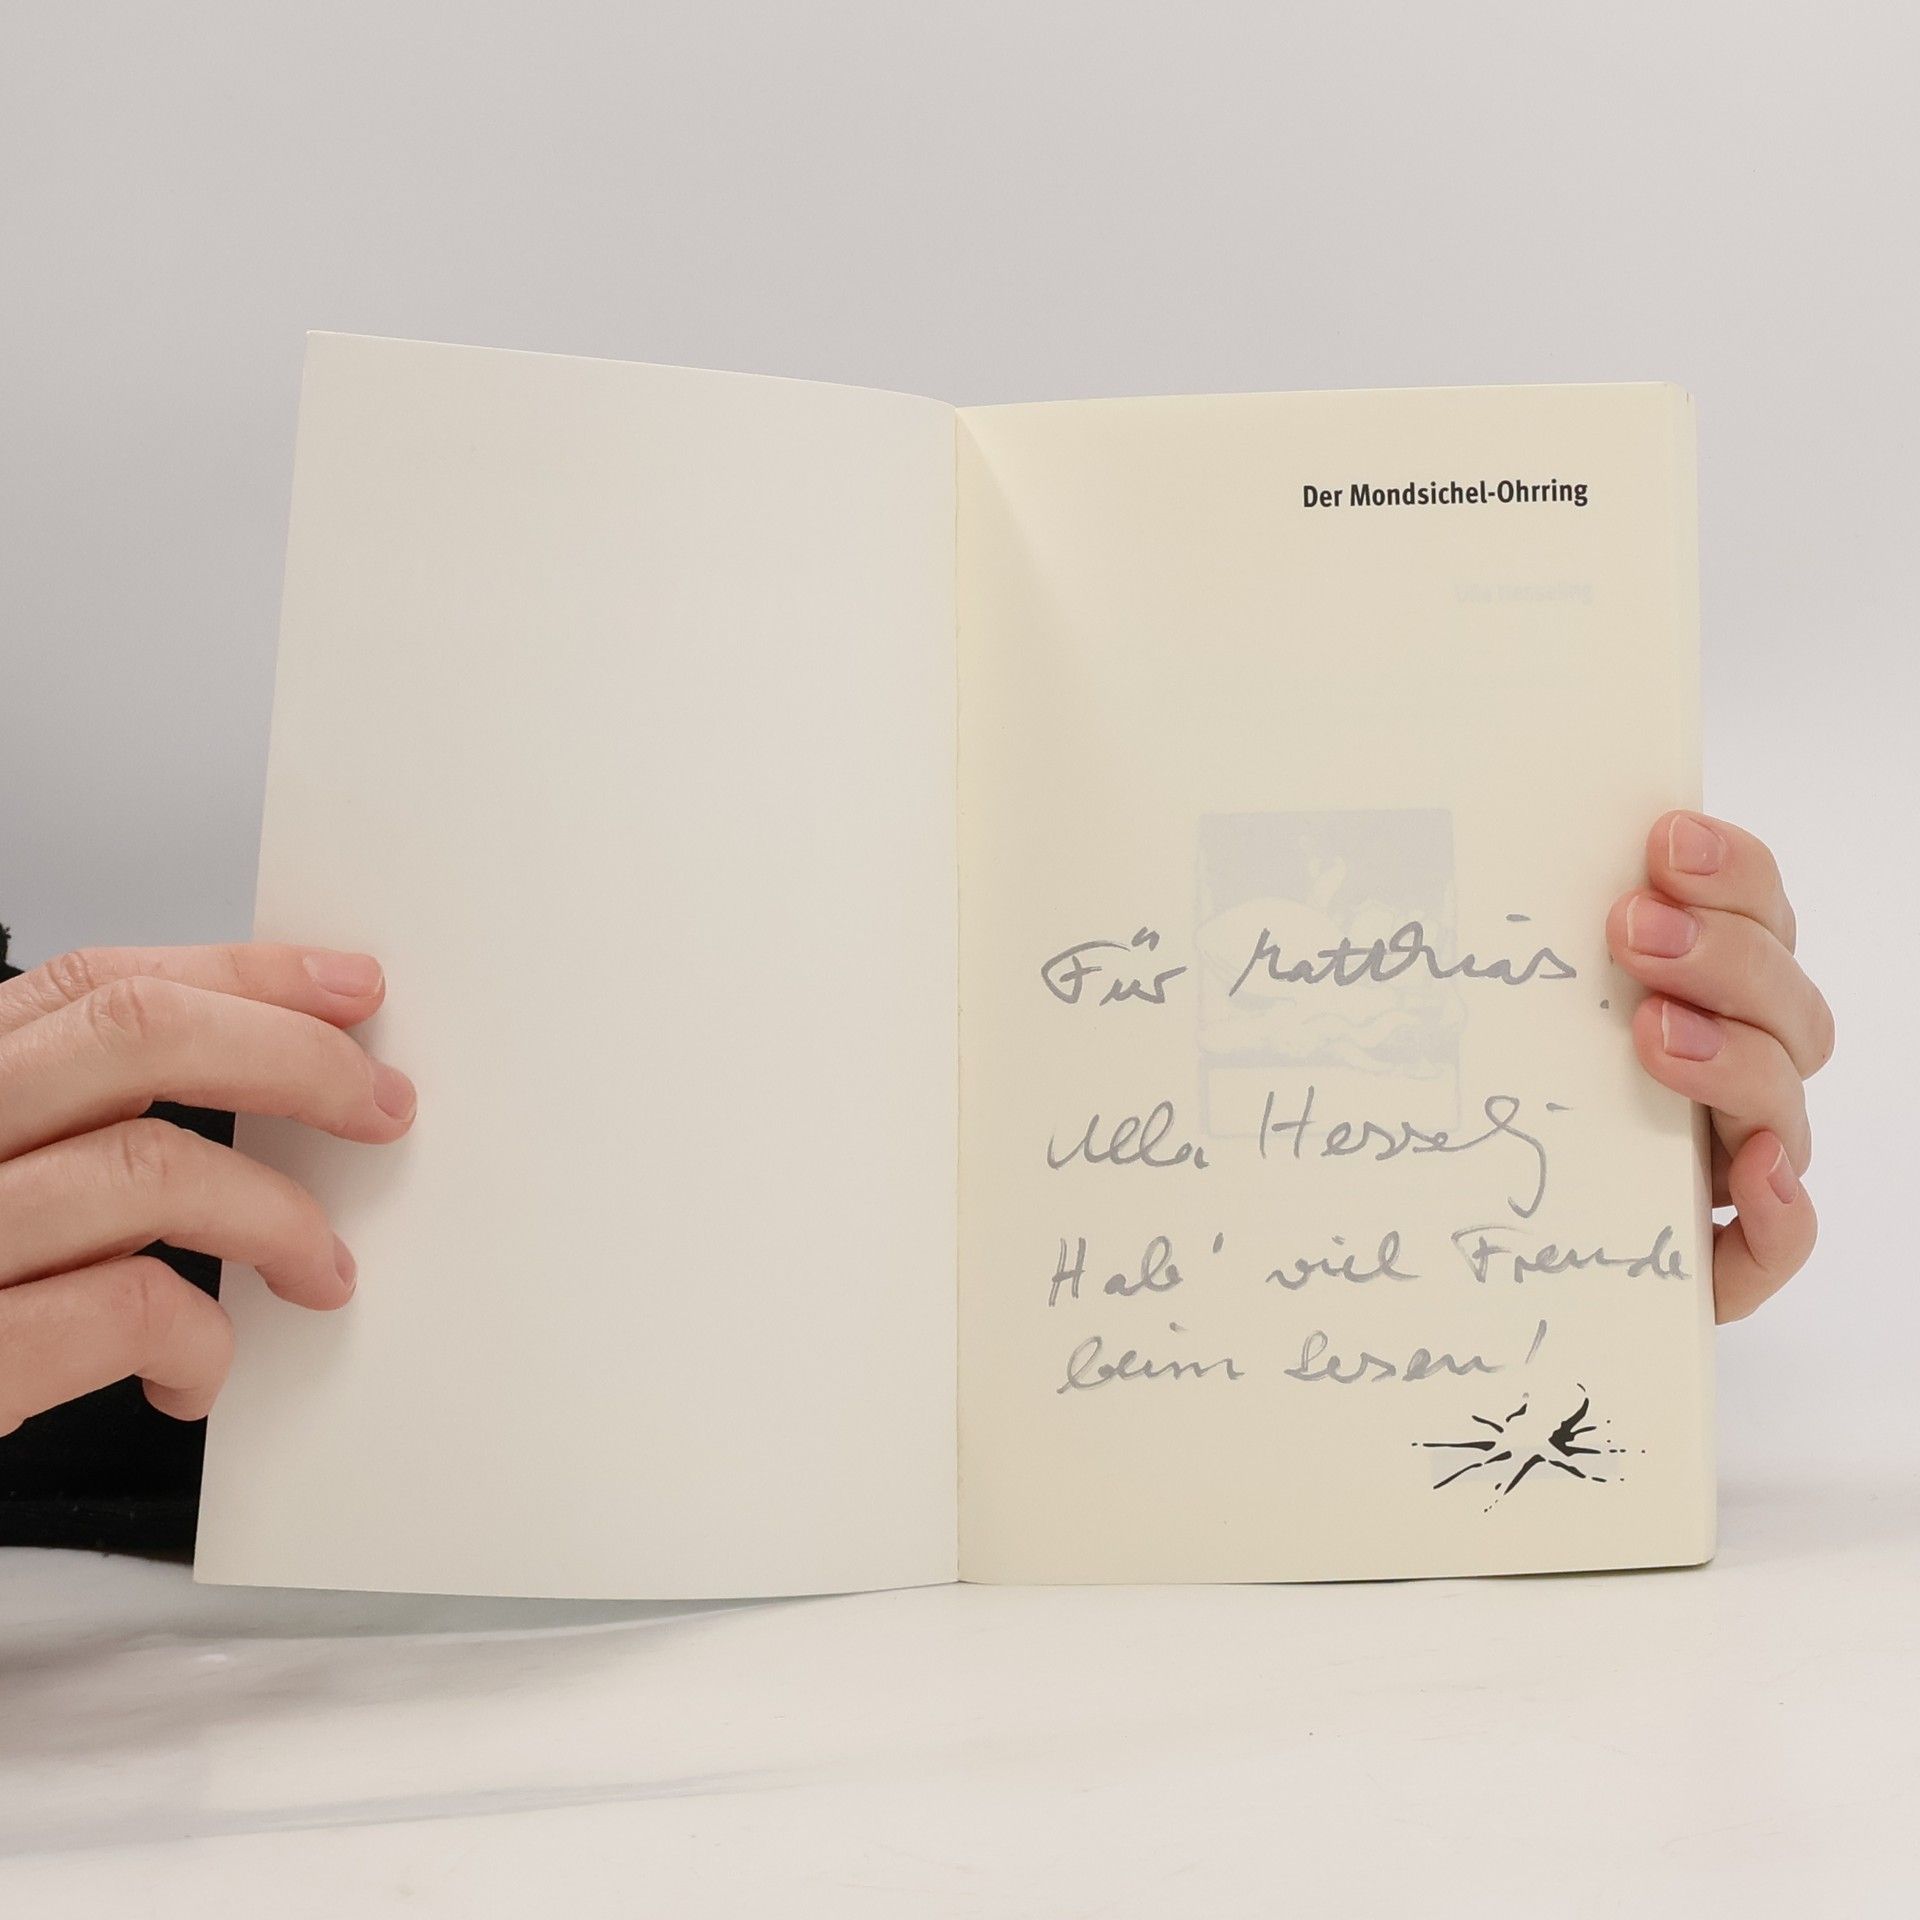 Der Mondsichel-Ohrring
Ulla Hesseling
Für Matthias.
Ulla Hesseling
Hab' viel Freude
beim Lesen!